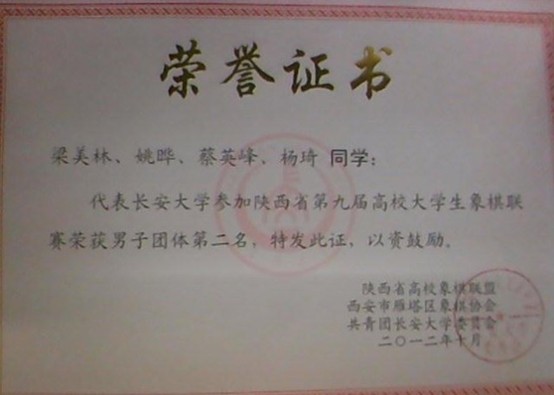 荣誉证书
梁美林、姚晔、蔡英峰、杨琦 同学:
代表长安大学参加陕西省第九届高校大学生象棋联
赛荣获男子团体第二名,特发此证,以资鼓励。
陕西省高校象棋联盟
西安市雁塔区象棋协会
共青团长安大学委员会
二〇一二年十月